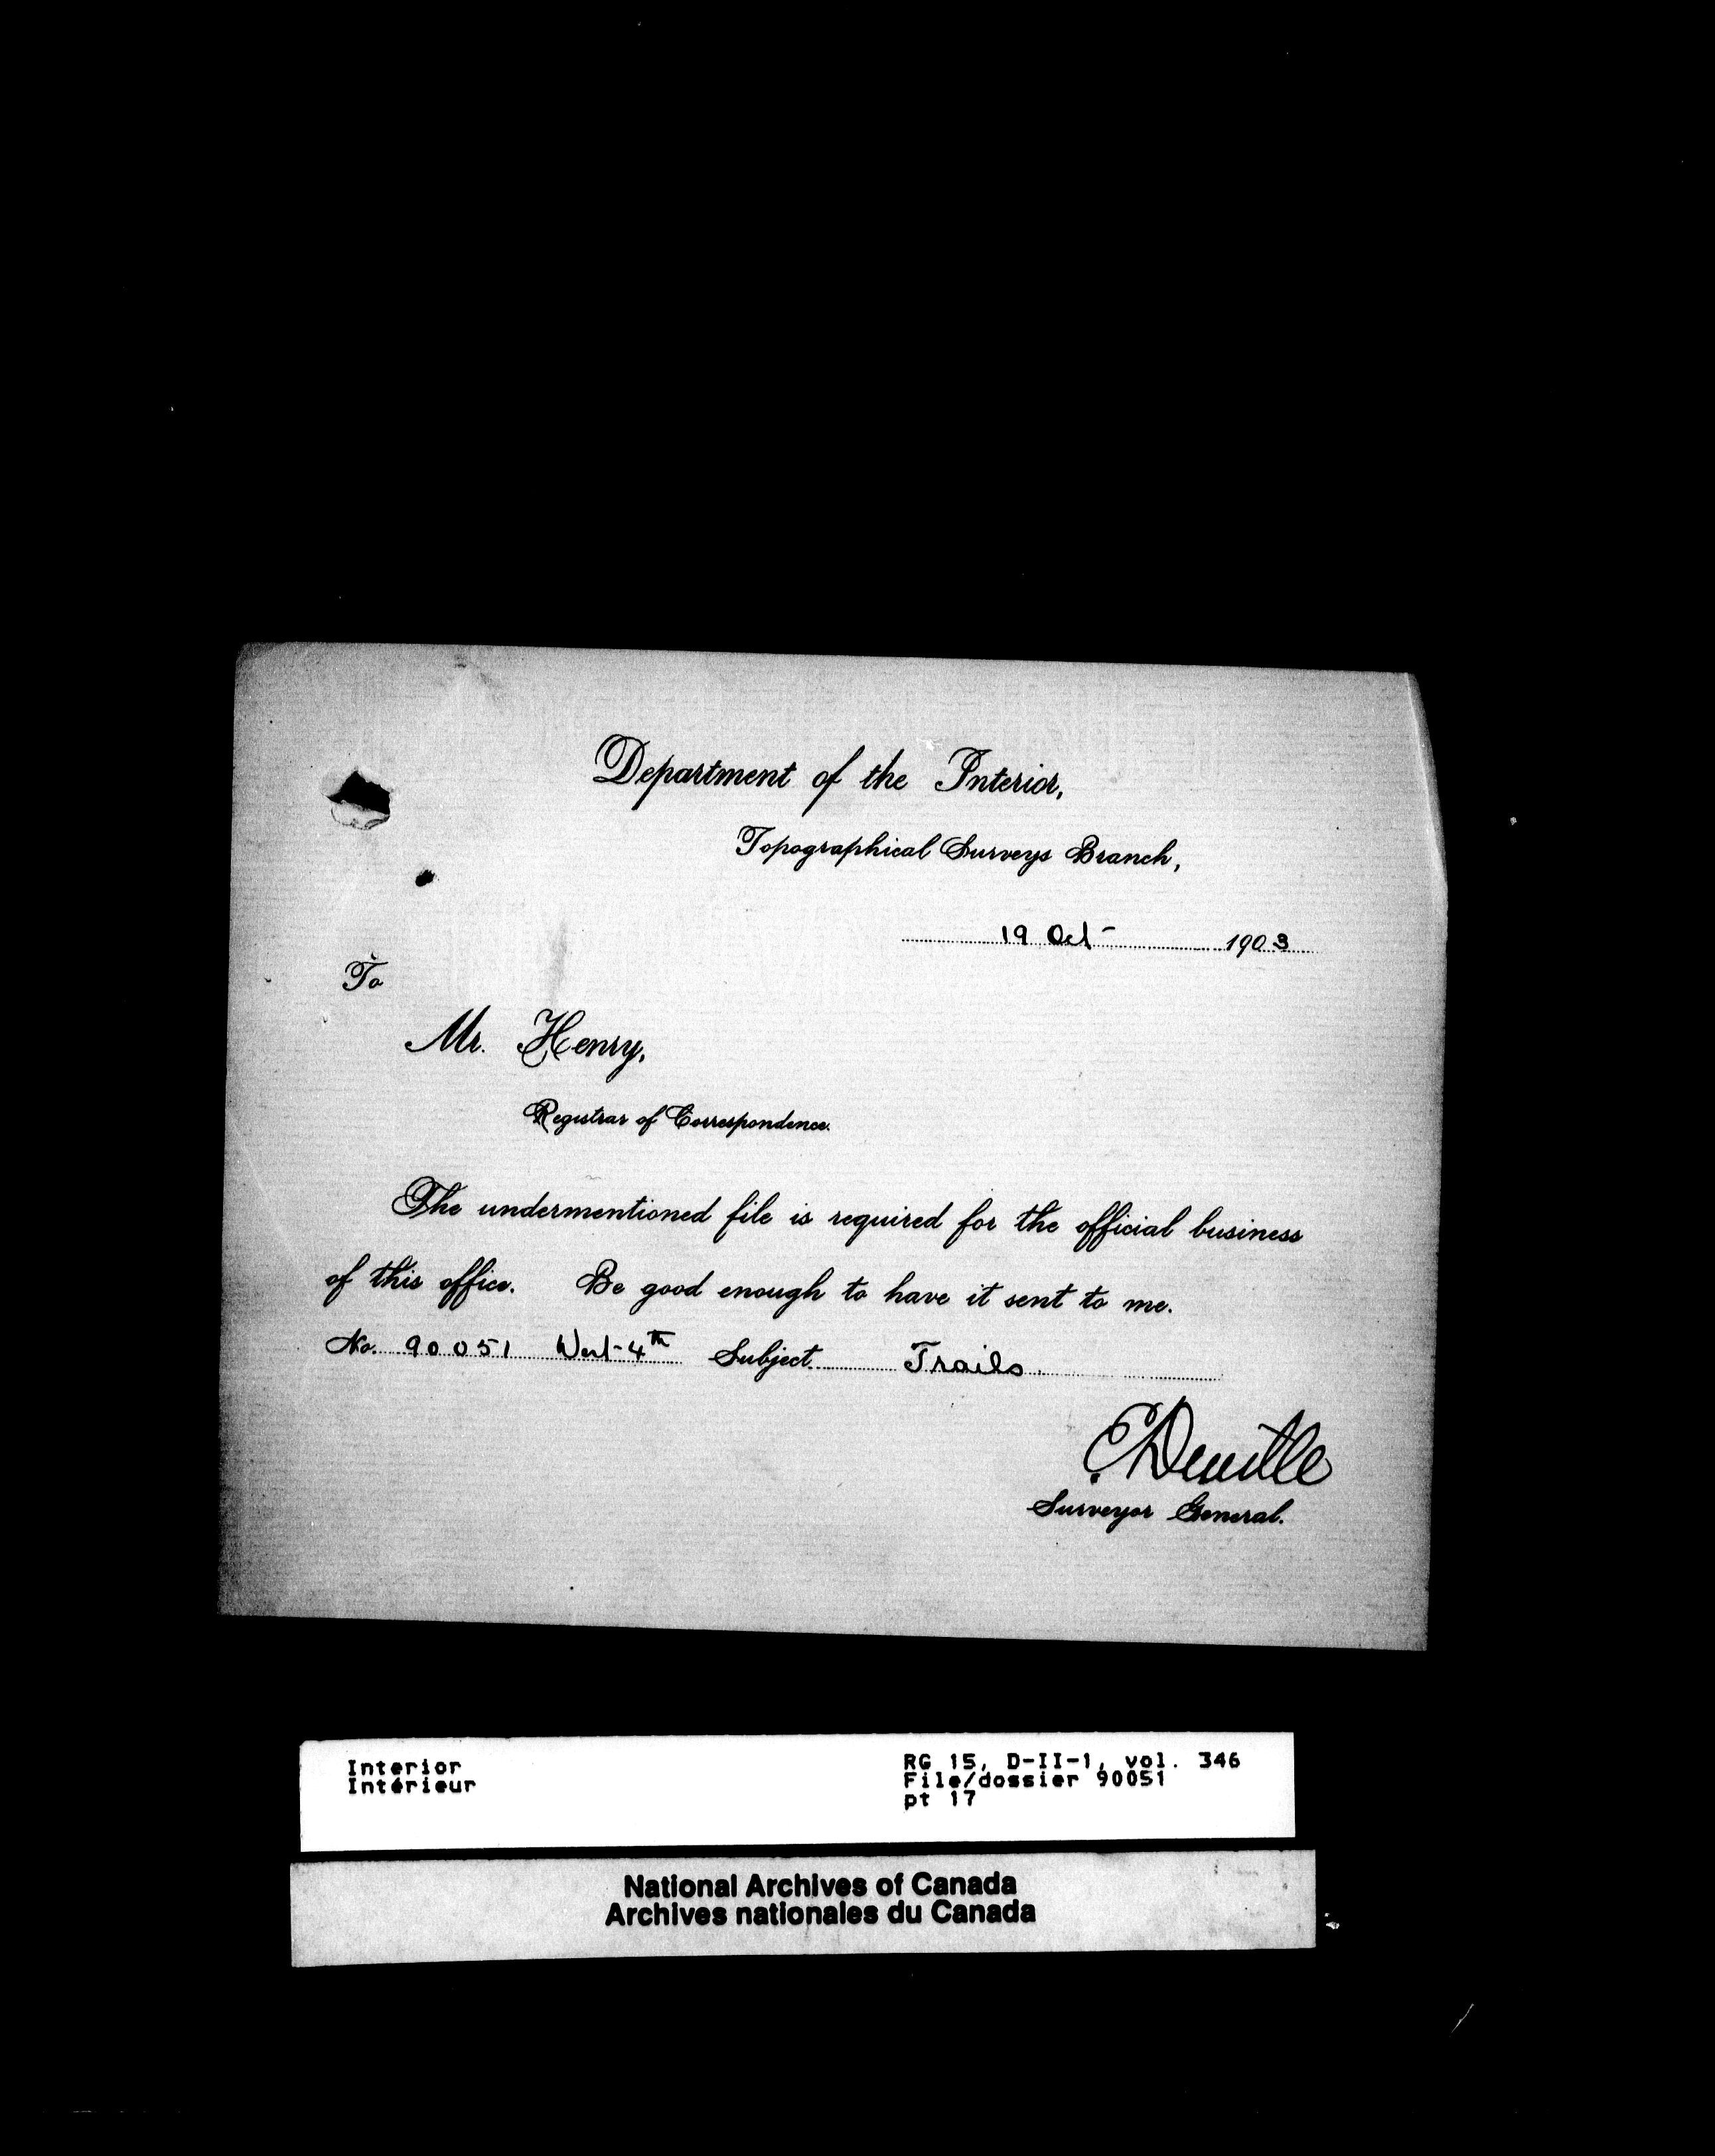 Department of the Interior,
Topographical Surveys Branch,
19 Oct- 1903
To
Mr. Henry,
Registrar of Correspondence.
The undermentioned file is required for the official business
of this office. Be good enough to have it sent to me.
No. 90051 West 4th Subject Trails
E. Deville
Surveyor General.
Interior
Intérieur
RG 15, D-II-1, vol. 346
File/dossier 90051
pt 17
National Archives of Canada
Archives nationales du Canada